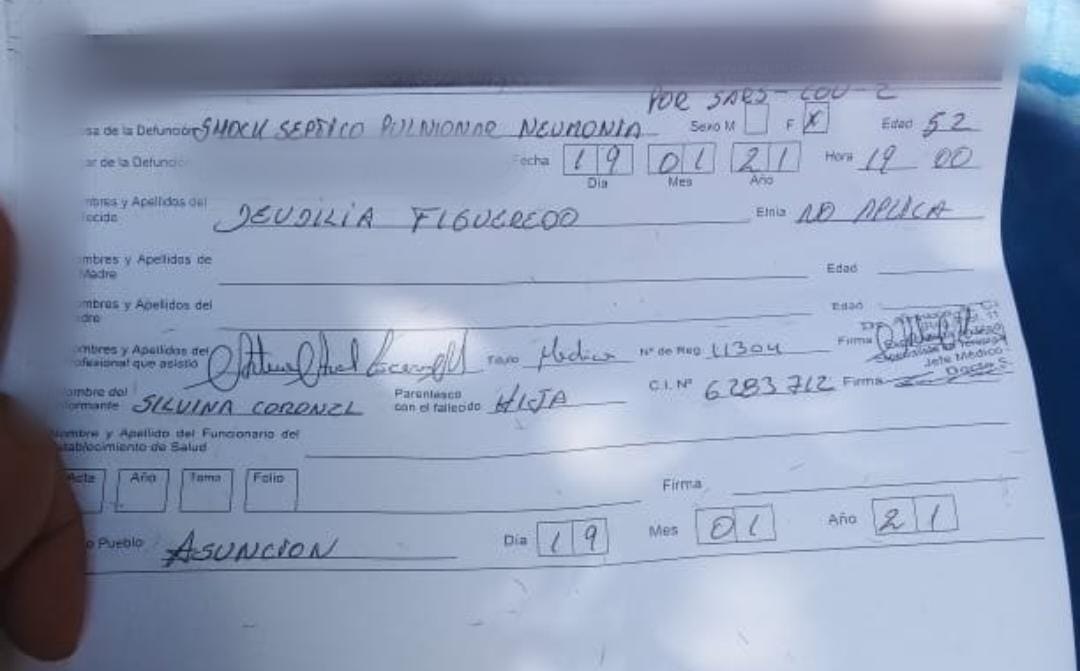 POR SARS-COV-2
sa de la Defunción SHOCK SEPTICO PULMONAR NEUMONIA Sexo M F X Edad 52
ar de la Defunció Fecha 19 01 21 Hora 19 00
Día Mes Año
mbres y Apellidos del
lecido DEUDILIA FIGUEREDO Etnia NO APLICA
mbres y Apellidos de
Madre Edad
mbres y Apellidos del
dre Edad
mbres y Apellidos del
ofesional que asistió Titulo Medico Nº de Reg 11304 Firma
Jefe Médico
ombre del
formante SILVINA CORONEL Parentesco
con el fallecido HIJA C.I. Nº 6283712 Firma
Nombre y Apellido del Funcionario del
stablecimiento de Salud
Acta Año Tomo Folio Firma
o Pueblo ASUNCION Día 19 Mes 01 Año 21